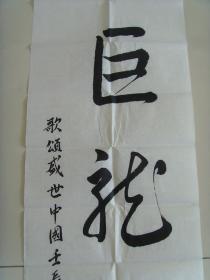 巨龙
歌頌盛世中國壬辰